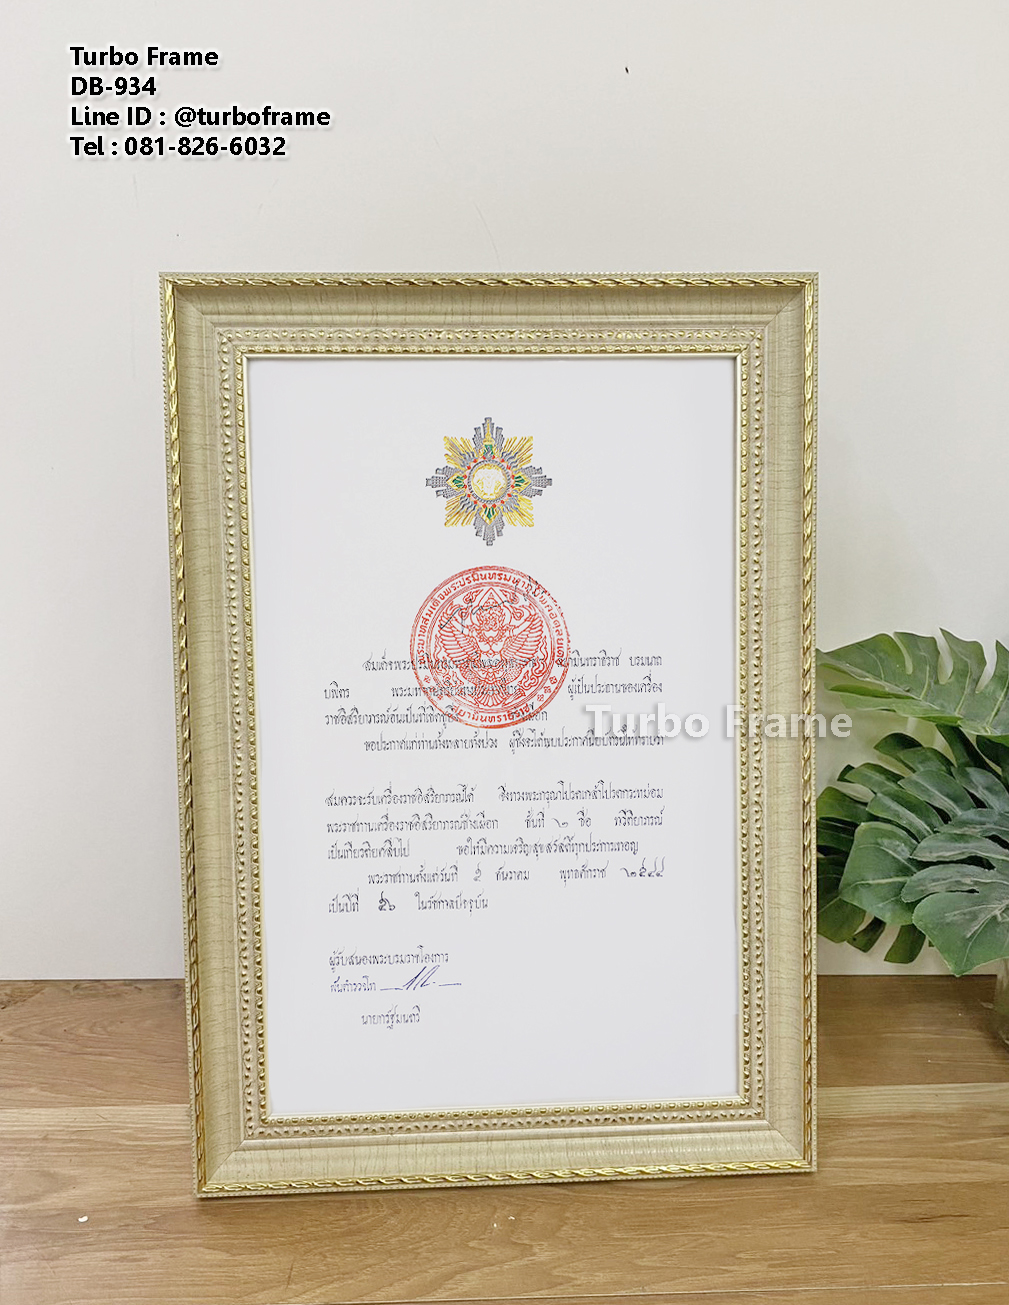 Turbo Frame
DB-934
Line ID : @turboframe
Tel : 081-826-6032
สมเด็จพระปรมินทรมหาภูมิพลอดุลยเดช สยามินทราธิราช บรมนาถ
บพิตร ผู้เป็นประธานของเครื่อง
ราชอิสริยาภรณ์อันเป็นที่เชิดชูยิ่งช้างเผือก
Turbo Frame
ขอประกาศแก่ท่านทั้งหลายทั้งปวง ผู้ซึ่งจะได้พบประกาศนียบัตรนี้ให้ทราบว่า
สมควรจะรับเครื่องราชอิสริยาภรณ์ได้ จึงทรงพระกรุณาโปรดเกล้าโปรดกระหม่อม
พระราชทานเครื่องราชอิสริยาภรณ์ช้างเผือก ชั้นที่ ๒ ชื่อ ทวีติยาภรณ์
เป็นเกียรติยศสืบไป ขอให้มีความเจริญสุขสวัสดิ์ทุกประการเทอญ
พระราชทานตั้งแต่วันที่ ๕ ธันวาคม พุทธศักราช ๒๕๔๔
เป็นปีที่ ๕๖ ในรัชกาลปัจจุบัน
ผู้รับสนองพระบรมราชโองการ
พันตำรวจโท
นายกรัฐมนตรี